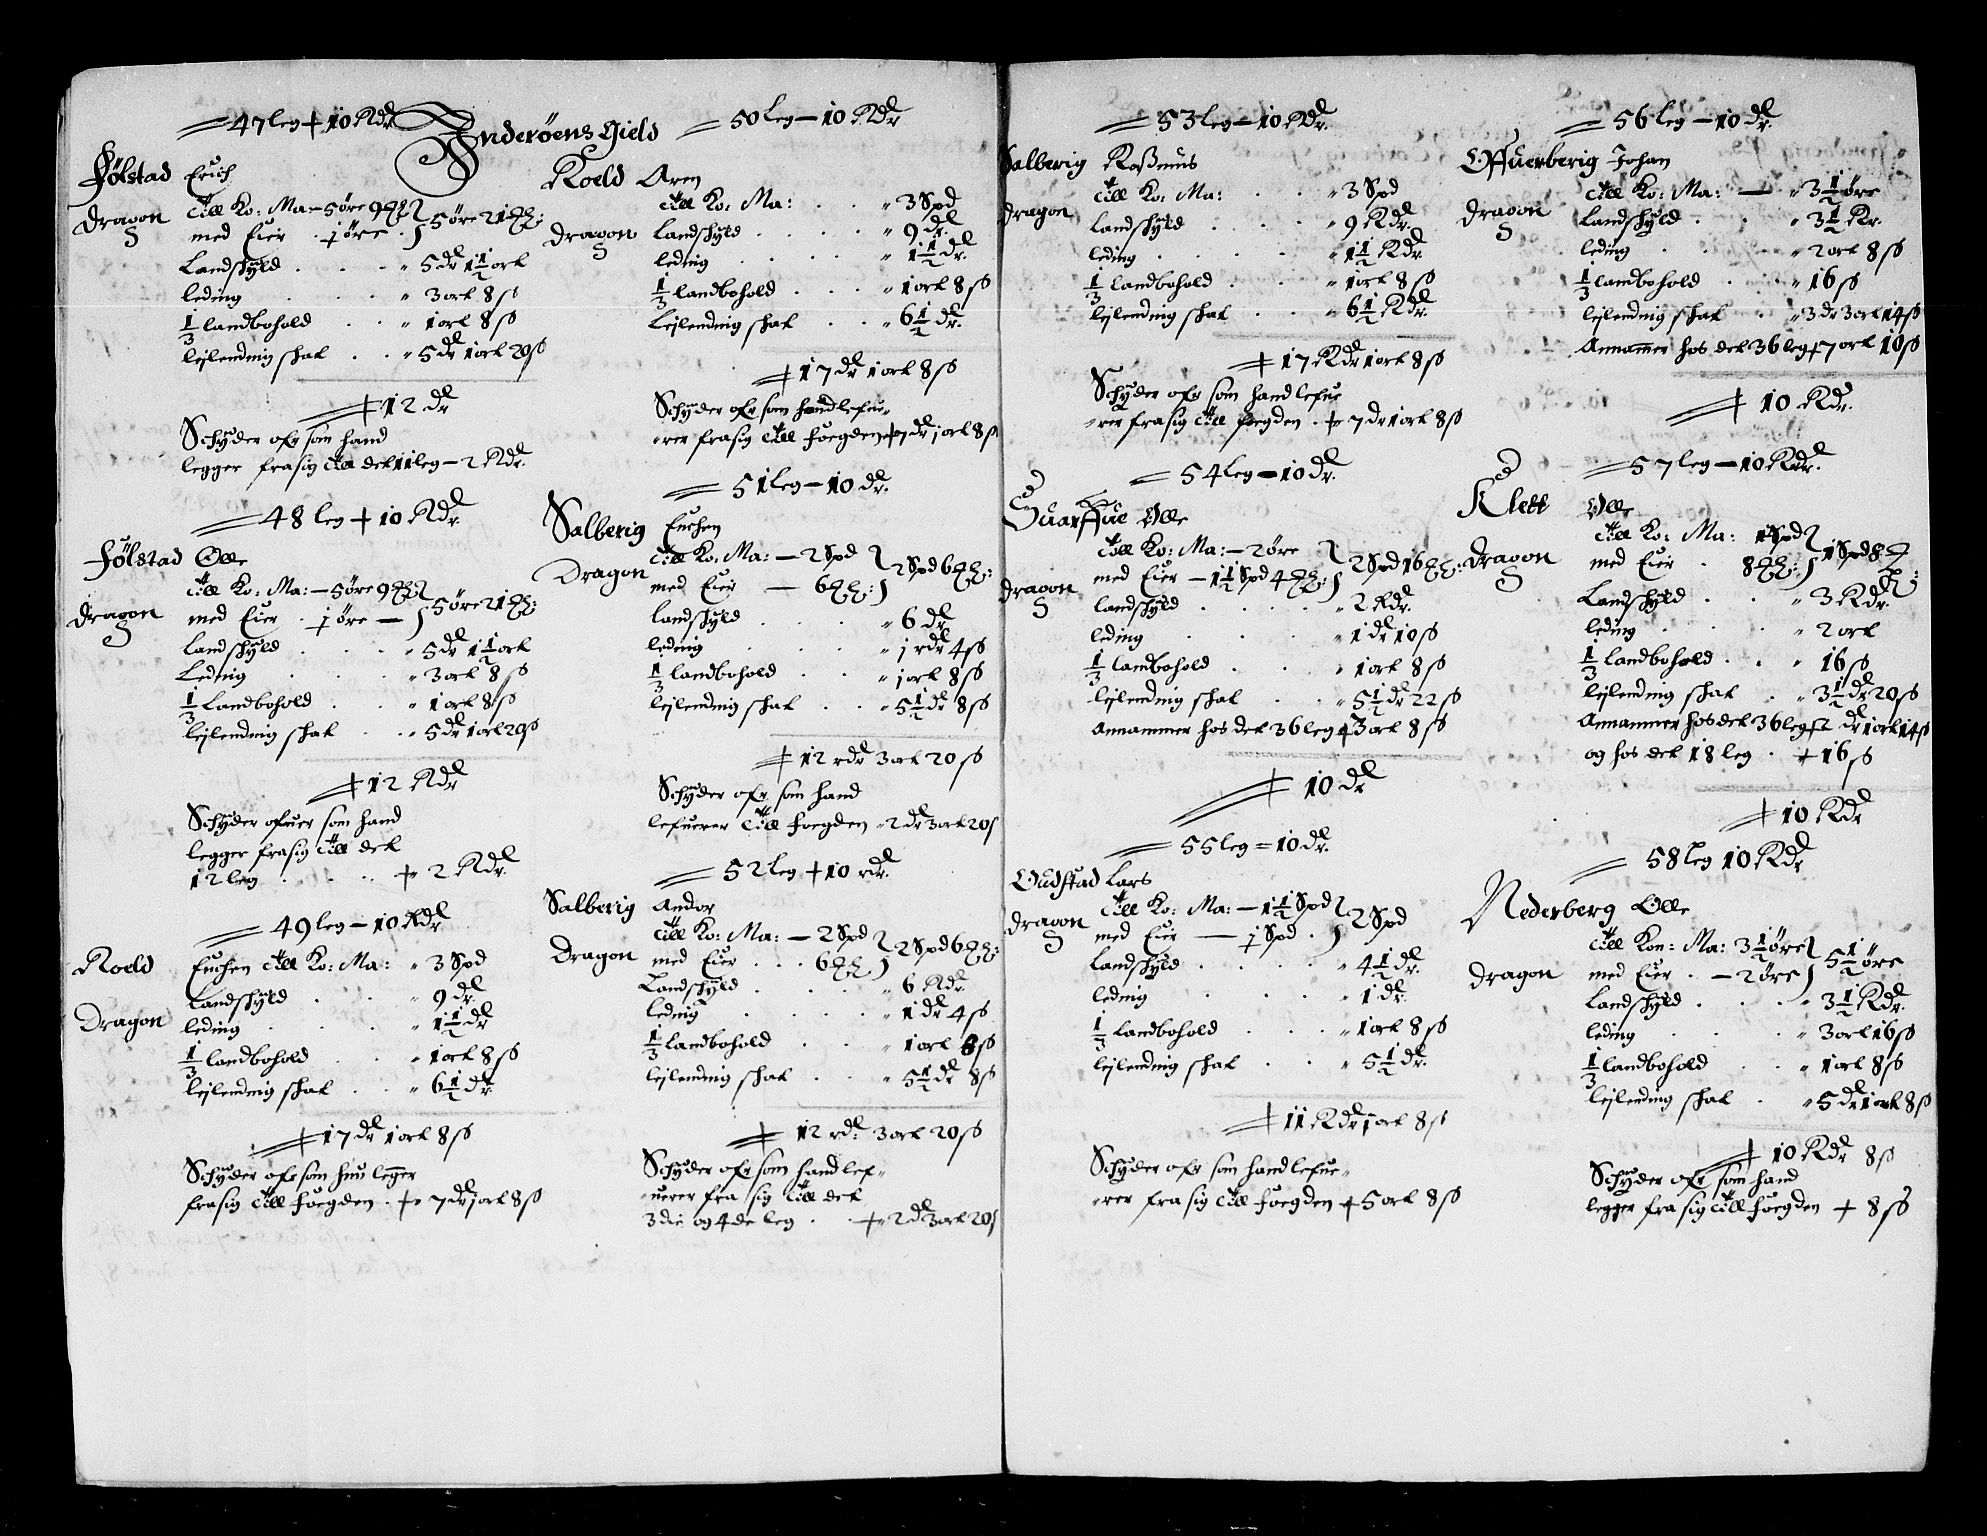 Inderöens Gield
47 leg + 10 Rdr
Fölstad Erich
Dragon
till Ko: Ma: – 5 öre 9 ℔
med Eier . 1 öre . } 5 öre 21 ℔:
Landskyld . . . " 5 dr 1½ ort
leding . . . " 3 ort 8 ß
⅓ landbohold . . " 1 ort 8 ß
leilending skat . . " 5 dr 1 ort 20 ß
+ 12 dr
Schyder ofr som hand
legger fra sig till det 11 leg – 2 Rdr.
48 leg + 10 Rdr.
Fölstad Olle
Dragon
till Ko: Ma: – 5 öre 9 ℔
med Eier . 1 öre – } 5 öre 21 ℔:
Landskyld . . . " 5 dr 1½ ort
Leding . . . " 3 ort 8 ß
⅓ Landbohold . . " 1 ort 8 ß
leilending skat . . " 5 dr 1 ort 20 ß
+ 12 Rdr
Schyder ofuer som hand
legger fra sig till det
12 leg . . . + 2 Rdr.
49 leg – 10 Rdr
Roeld Euchen till Ko: Ma: " 3 Spd
Dragon
Landskyld . . " 9 dr.
leding . . . " 1½ dr
⅓ landbohold . . " 1 ort 8 ß
leilending skat . . " 6½ dr.
+ 17 dr 1 ort 8 ß
Schyder ofr som hun legger
fra sig till foegden . + 7 dr 1 ort 8 ß
50 leg – 10 Rdr
Roeld Aren
Dragon
till Ko: Ma: . . " 3 Spd
Landskyld . . . . " 9 dr.
leding . . . . " 1½ dr.
⅓ landbohold . . . " 1 ort 8 ß
Leilending skat . . " 6½ dr.
+ 17 dr 1 ort 8 ß
Schyder ofr som hand lefue-
-rer fra sig till foegden + 7 dr 1 ort 8 ß
51 leg – 10 dr.
Salberig Euchen
Dragon
till Ko: Ma: – 2 Spd
med Eier – 6 ℔: } 2 Spd 6 ℔:
landskyld . . . " 6 dr
leding . . . " 1 rdr 4 ß
⅓ landbohold . . " 1 ort 8 ß
leilending skat . . " 5½ dr 8 ß
+ 12 rdr 3 ort 20 ß
Schyder ofr som hand
lefuerer till foegden " 2 dr 3 ort 20 ß
52 leg + 10 rdr.
Salberig Andor
Dragon
till Ko: Ma: – 2 Spd
med Eier . . . 6 ℔ } 2 Spd 6 ℔:
Landskyld . . . " 6 Rdr.
leding . . . " 1 dr 4 ß
⅓ landbohold . . " 1 ort 8 ß
leilending skat . . " 5½ dr 8 ß
+ 12 rdr 3 ort 20 ß
Schyder ofr som hand lef-
-uerer fra sig till det
3die og 4de leg . . + 2 dr 3 ort 20 ß
53 leg – 10 Rdr.
Salberig Rasmus
Dragon
till Ko: Ma: . . " 3 Spd
Landskyld . . . " 9 Rdr.
leding . . . . " 1½ Rdr.
⅓ landbohold . . . " 1 ort 8 ß
leilending skat . . " 6½ Rdr.
+ 17 Rdr 1 ort 8 ß
Schyder ofr som hand lefue
-rer fra sig till foegden . + 7 dr 1 ort 8 ß
54 leg – 10 dr.
Olle
Dragon
till Ko: Ma: – 2 öre
med Eier – 1½ Spd 4 ℔: } 2 Spd 16 ℔:
landskyld . . . . " 2 Rdr.
leding . . . " 1 dr 10 ß
⅓ landbohold . . . " 1 ort 8 ß
leilending skat . . " 5½ dr 22 ß
Annammer hos det 36 leg + 3 ort 8 ß
+ 10 dr
55 leg = 10 dr.
Gudstad Lars
Dragon
till Ko: Ma: – 1½ Spd
med Eier – 1 Spd . } 2 Spd
Landskyld . . . . " 4½ dr.
leding . . . " 1 dr.
⅓ landbohold . . . " 1 ort 8 ß
leilending skat . . " 5½ dr.
+ 11 Rdr 1 ort 8 ß
Schyder ofr som hand lefue-
-rer fra sig till foegden + 5 ort 8 ß
56 leg – 10 dr.
Offuerberig Johan
Dragon
till Ko: Ma: – " 3½ öre
Landskyld . . . " 3½ Rr.
leding . . . " 2 ort 8 ß
⅓ landbohold . . " 16 ß
leilending skat . " 3 dr 3 ort 14 ß
Annammer hos det 36 leg + 7 ort 10 ß
+ 10 Rdr.
57 leg – 10 Rdr.
Klett Olle
Dragon
till Ko: Ma: 1 Spd
med Eier . 8 ℔: } 1 Spd 8 ℔:
Landskyld . . . " 3 Rdr.
leding . . . " 2 ort
⅓ landbohold . . " 16 ß
leilending skat . " 3½ dr 20 ß
Annammer hos det 36 leg + 2 dr 1 ort 14 ß
og hos det 18 leg . + 16 ß
+ 10 Rdr
58 leg 10 Rdr
Nederberg Olle
Dragon
till Kon: Ma: 3½ öre
med Eier . – 2 öre } 5½ öre
Landskyld . . . " 3½ Rdr.
leding . . . " 3 ort 16 ß
⅓ landbohold . . " 1 ort 8 ß
leilending skat . " 5 dr 1 ort 8 ß
+ 10 Rdr 8 ß
Schyder ofr som hand
legger fra sig till foegden + 8 ß